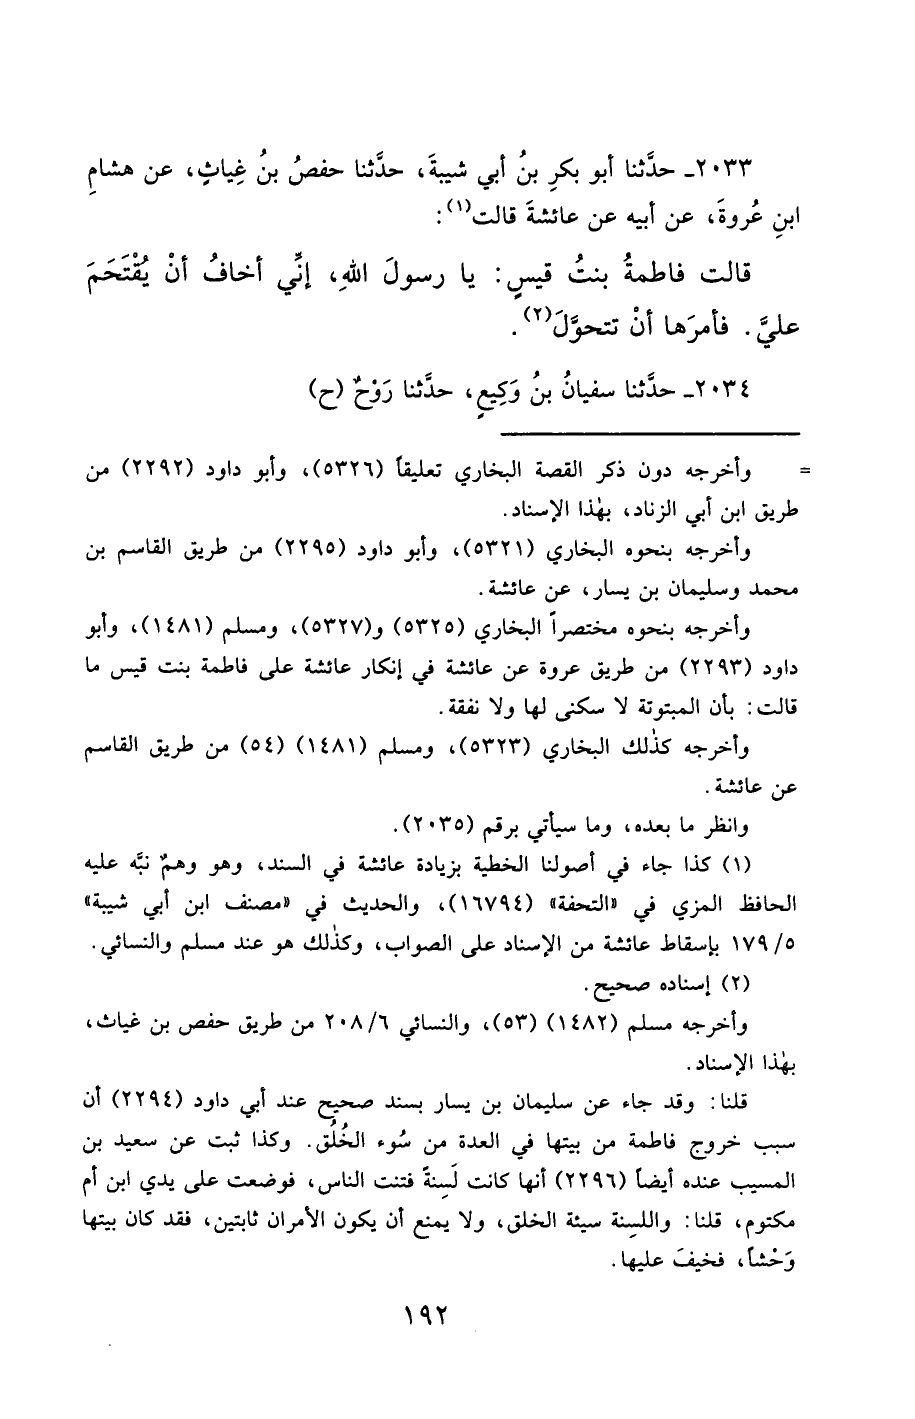 ٢٠٣٣ـ حدَّثنا أبو بكرِ بنُ أبي شيبةَ، حدَّثنا حفصُ بنُ غِياثٍ، عن هشامِ
ابنِ عُروةَ، عن أبيه عن عائشةَ قالت(١):
قالت فاطمةُ بنتُ قيسٍ: يا رسولَ اللهِ، إنِّي أخافُ أنْ يُقْتَحَمَ
عليَّ. فأمرَها أنْ تتحوَّلَ(٢).
٢٠٣٤ـ حدَّثنا سفيانُ بنُ وَكِيعٍ، حدَّثنا رَوْحٌ (ح)
= وأخرجه دون ذكر القصة البخاري تعليقاً (٥٣٢٦)، وأبو داود (٢٢٩٢) من
طريق ابن أبي الزناد، بهٰذا الإسناد.
وأخرجه بنحوه البخاري (٥٣٢١)، وأبو داود (٢٢٩٥) من طريق القاسم بن
محمد وسليمان بن يسار، عن عائشة.
وأخرجه بنحوه مختصراً البخاري (٥٣٢٥) و(٥٣٢٧)، ومسلم (١٤٨١)، وأبو
داود (٢٢٩٣) من طريق عروة عن عائشة في إنكار عائشة على فاطمة بنت قيس ما
قالت: بأن المبتوتة لا سكنى لها ولا نفقة.
وأخرجه كذٰلك البخاري (٥٣٢٣)، ومسلم (١٤٨١) (٥٤) من طريق القاسم
عن عائشة.
وانظر ما بعده، وما سيأتي برقم (٢٠٣٥).
(١) كذا جاء في أصولنا الخطية بزيادة عائشة في السند، وهو وهمٌ نبَّه عليه
الحافظ المزي في «التحفة» (١٦٧٩٤)، والحديث في «مصنف ابن أبي شيبة»
٥/ ١٧٩ بإسقاط عائشة من الإسناد على الصواب، وكذٰلك هو عند مسلم والنسائي.
(٢) إسناده صحيح.
وأخرجه مسلم (١٤٨٢) (٥٣)، والنسائي ٦/ ٢٠٨ من طريق حفص بن غياث،
بهٰذا الإسناد.
قلنا: وقد جاء عن سليمان بن يسار بسند صحيح عند أبي داود (٢٢٩٤) أن
سبب خروج فاطمة من بيتها في العدة من سُوء الخُلُق. وكذا ثبت عن سعيد بن
المسيب عنده أيضاً (٢٢٩٦) أنها كانت لَسِنةً فتنت الناس، فوضعت على يدي ابن أم
مكتوم، قلنا: واللسِنة سيئة الخلق، ولا يمنع أن يكون الأمران ثابتين، فقد كان بيتها
وَحْشاً، فخيفَ عليها.
١٩٢